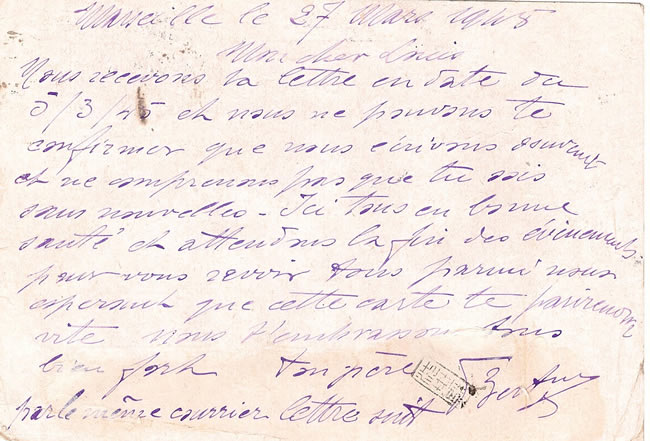 Marseille le 27 Mars 1945
Mon cher Louis
Nous recevons ta lettre en date du
5/3/45 et nous ne pouvons te
confirmer que nous écrivons souvent
et ne comprenons pas que tu sois
sans nouvelles - Ici tous en bonne
santé et attendons la fin des évènements
pour vous revoir tous parmi nous
esperant que cette carte te parvienne
vite nous t'embrassons tous
bien fort ton père
par le même courrier lettre suit